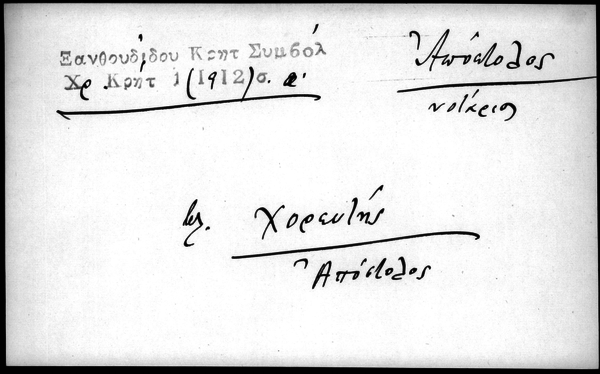 Ξανθουδίδου Κρητ Συμβόλ
Χρ Κρήτ 1 (1912) σ. α'
Ἀπόστολος
νοτάριος
βλ. Χορευτής
Ἀπόστολος